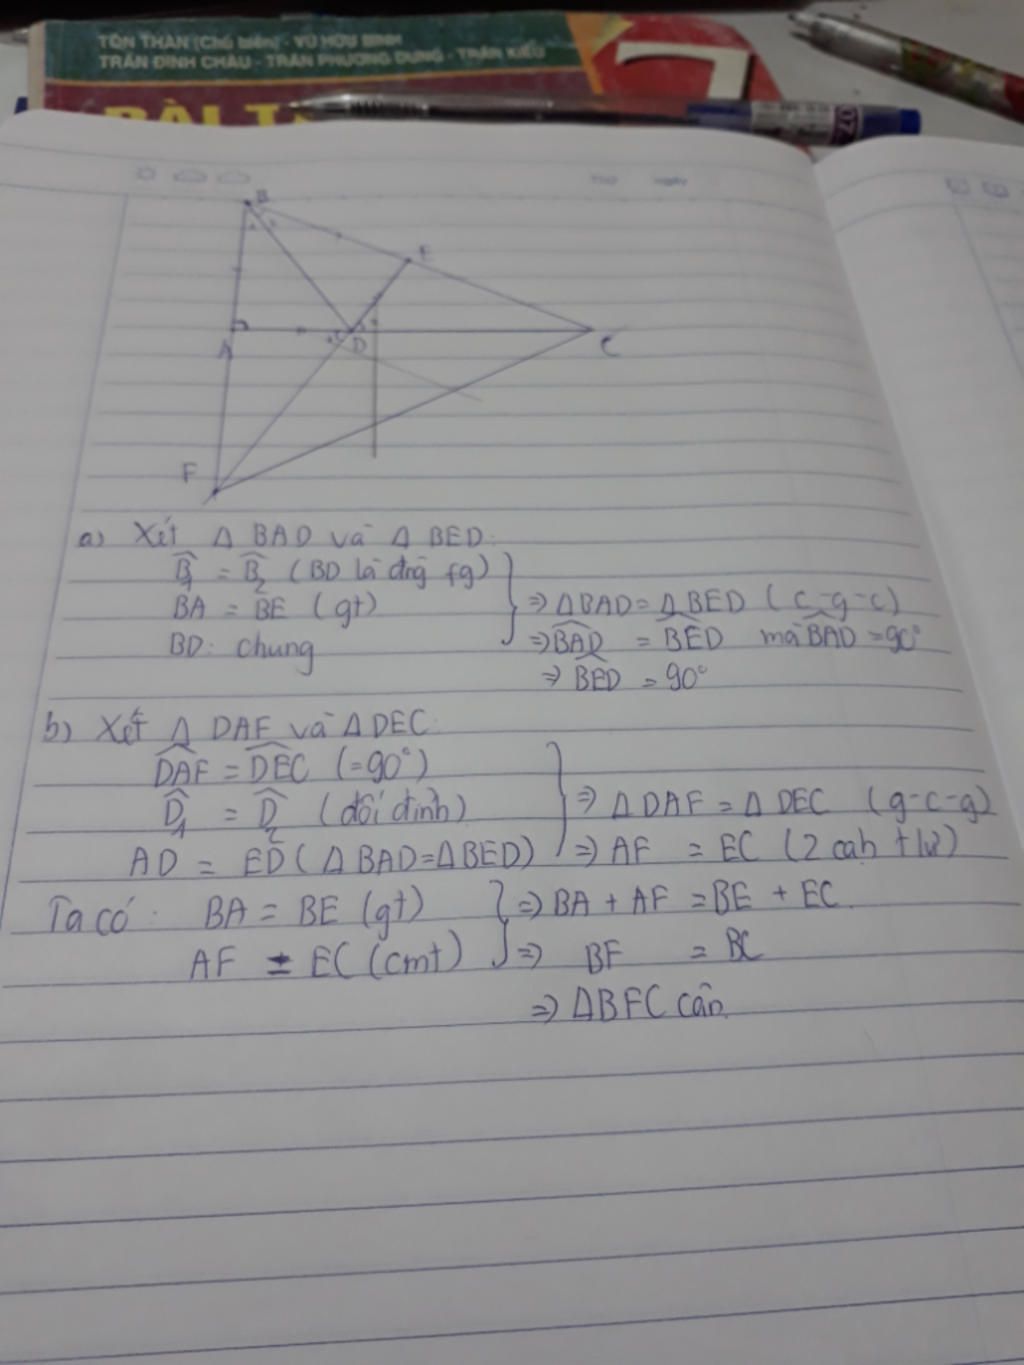 TÔN THÂN (Chủ biên) - VŨ HỮU BÌNH
TRẦN ĐÌNH CHÂU - TRẦN PHƯƠNG DUNG - TRẦN KIỀU
7
BÀI T
Thứ ngày
B
E
A
D
C
F
a) Xét Δ BAD và Δ BED:
B̂1 = B̂2 (BD là đrg fg)
BA = BE (gt)
BD: chung
⇒ ΔBAD = ΔBED (c-g-c)
⇒ BAD = BED mà BAD = 90°
⇒ BED = 90°
b) Xét Δ DAF và Δ DEC:
DAF = DEC (=90°)
D̂1 = D̂2 (đối đỉnh)
AD = ED (Δ BAD=ΔBED)
⇒ Δ DAF = Δ DEC (g-c-g)
⇒ AF = EC (2 cah t/ư)
Ta có: BA = BE (gt)
AF = EC (cmt)
⇒ BA + AF = BE + EC.
⇒ BF = BC
⇒ ΔBFC cân.